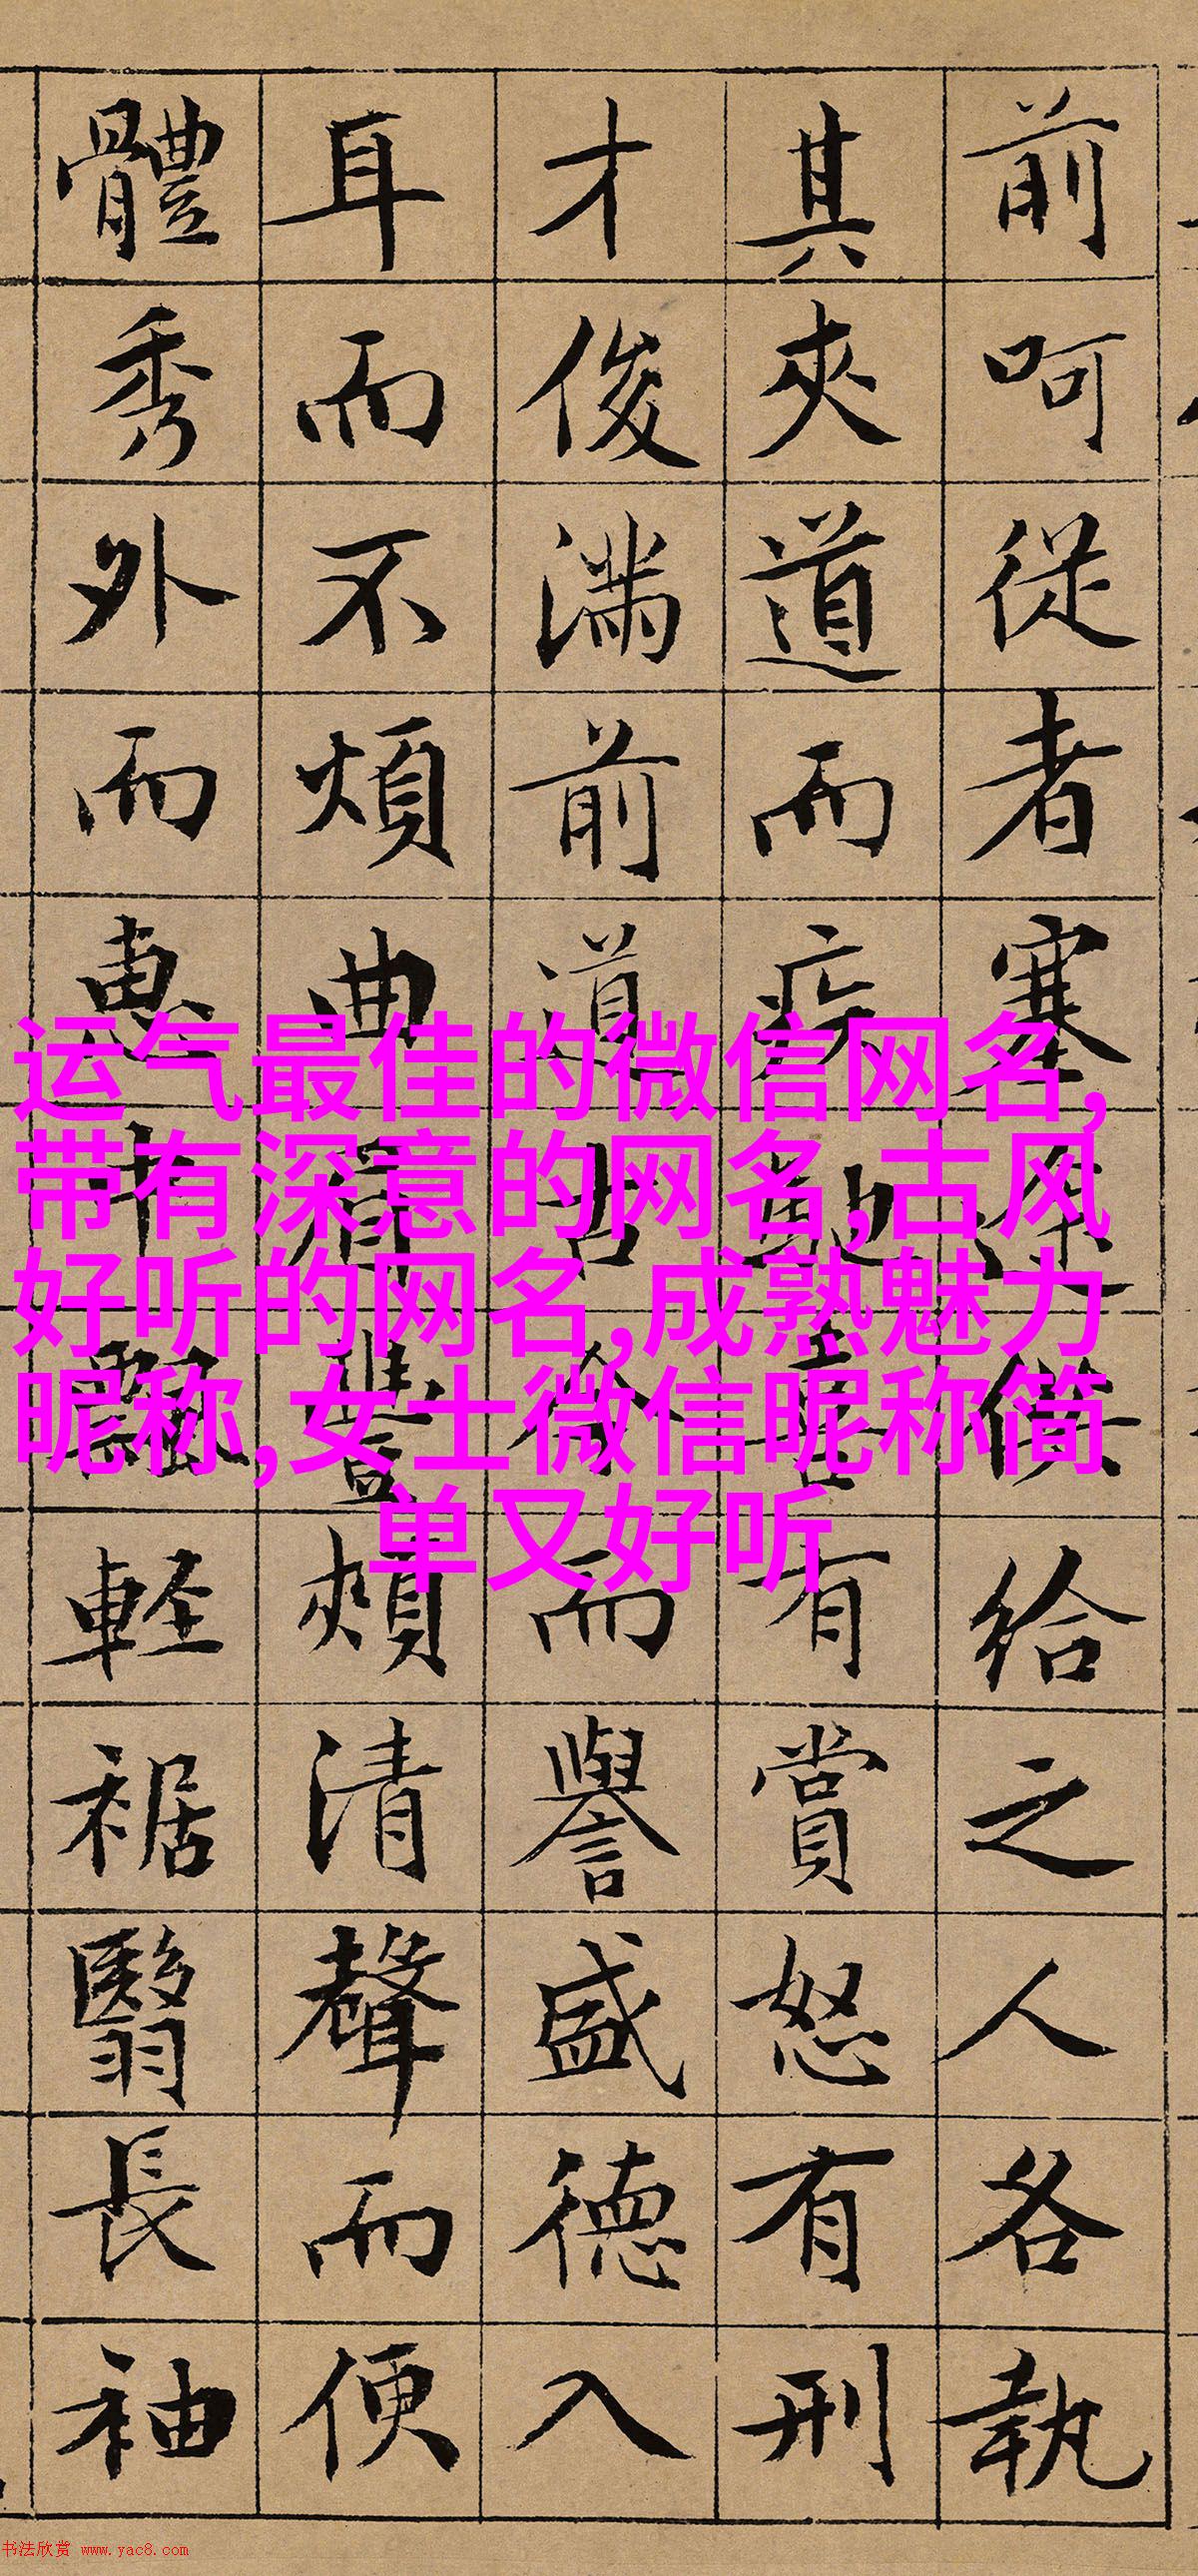 前呵從者塞途供給之人各執
其夾道而疾馳喜有賞怒有刑
才俊満前道古今而譽盛德入
耳而不煩曲眉豐頰清聲而便
體秀外而惠中飄軽裾翳長袖
运气最佳的微信网名,
带有深意的网名,古风
好听的网名,成熟魅力
昵称,女士微信昵称简
单又好听
书法欣赏 www.yac8.com